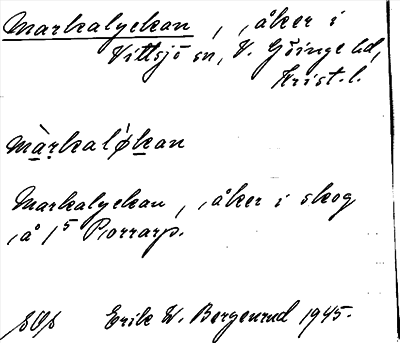 Markalyckan, åker i
Vittsjö sn, V. Göinge hd,
Krist. l.
màrkaløkan
Markalyckan, åker i skog
å 1⁵ Porrarp.
Erik W. Bergenrud 1945.